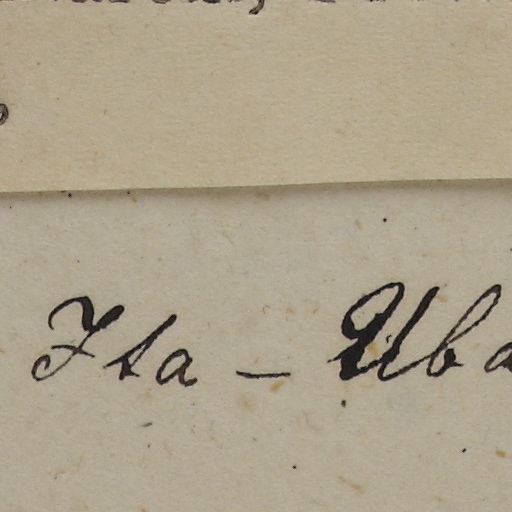 Isa - Uba